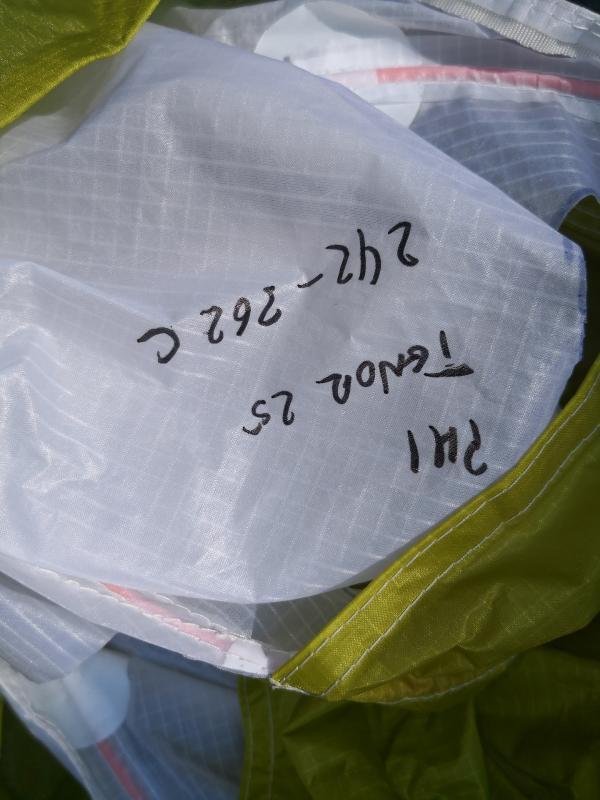 PHI
TENOR 25
242-262 C